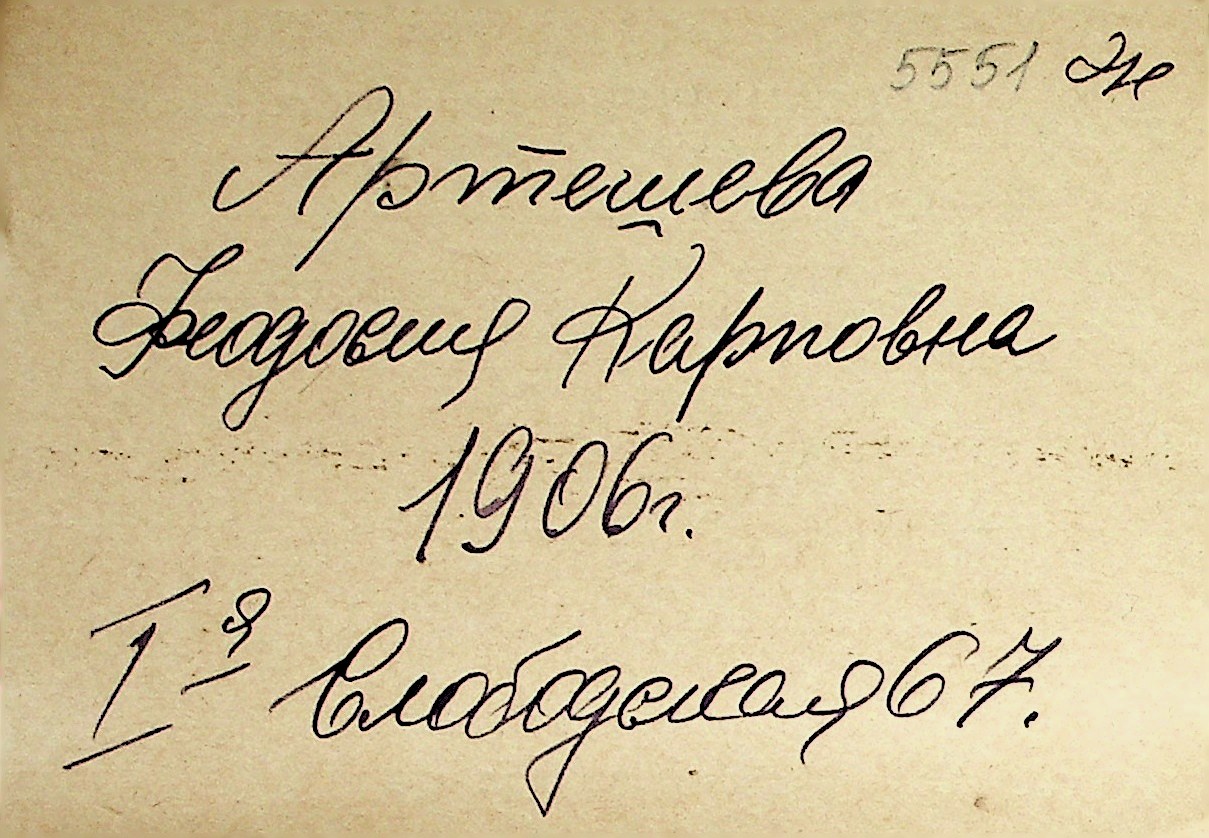 5551 Ж
Артешева
Феодосия Карповна
1906г.
I я Слободская 67.